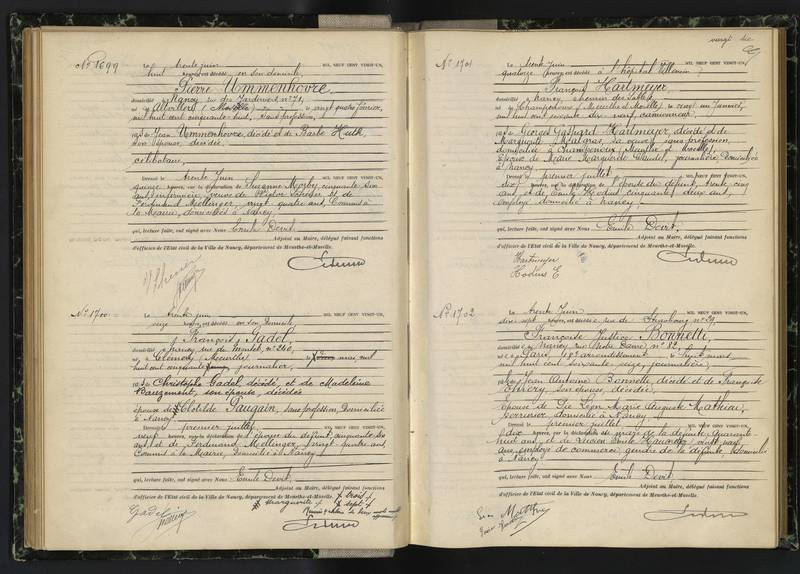 vingt six
N° 1699
Le trente juin MIL NEUF CENT VINGT-UN,
huit heures, est décédé en son domicile
Pierre Ummenhovre
domicilié à Nancy, rue des Jardiniers n° 71,
né à (Moselle) le vingt quatre février,
mil huit cent cinquante huit, sans profession,
fils de Jean Ummenhovre, décédé et de Barbe
son épouse, décédée.
célibataire.
Dressé le trente Juin MIL NEUF CENT VINGT-UN,
quinze heures, sur la déclaration de Suzanne cinquante six
ans, infirmière, veuve de et de
Ferdinand Mellinger, vingt quatre ans, Commis à
la Mairie, domiciliés à Nancy
qui, lecture faite, ont signé avec Nous Emile Devit,
Adjoint au Maire, délégué faisant fonctions
d'officier de l'Etat civil de la Ville de Nancy, département de Meurthe-et-Moselle.
N° 1700
Le trente juin MIL NEUF CENT VINGT-UN,
seize heures, est décédé en son domicile
François Gadel
domicilié à Nancy, rue de n° 240,
né à Clémery (Moselle) le mars mil
huit cent cinquante journalier,
fils de Christophe Gadel, décédé, et de Madeleine
Bauzemont, son épouse, décédée
époux de Clotilde Paugain, sans profession, domiciliée
à Nancy.
Dressé le premier juillet MIL NEUF CENT VINGT-UN,
neuf heures, sur la déclaration de l'épouse du défunt, cinquante six
ans, et de Ferdinand Mellinger, vingt quatre ans,
Commis à la Mairie, domiciliés à Nancy
qui, lecture faite, ont signé avec Nous Emile Devit,
Adjoint au Maire, délégué faisant fonctions
d'officier de l'Etat civil de la Ville de Nancy, département de Meurthe-et-Moselle.
Marguerite
Gadel
N° 1701
Le trente juin MIL NEUF CENT VINGT-UN,
quatorze heures, est décédé à l'hôpital Villemin
François Hartmeyer
domicilié à Nancy, chemin des Sables
né à Champigneulles (Meurthe et Moselle) le vingt un janvier,
mil huit cent soixante dix neuf, camionneur,
fils de Georges Gaspard Hartmeyer, décédé et de
Marguerite Malgras, sa veuve, sans profession,
domiciliée à Champigneulles (Meurthe et Moselle)
Epoux de Marie Marguerite journalière domiciliée
à Nancy
Dressé le premier juillet MIL NEUF CENT VINGT-UN,
dix heures, sur la déclaration de l'épouse du défunt, trente cinq
ans, et de Emile Hodins cinquante deux ans,
employé domiciliés à Nancy.
qui, lecture faite, ont signé avec Nous Emile Devit,
Adjoint au Maire, délégué faisant fonctions
d'officier de l'Etat civil de la Ville de Nancy, département de Meurthe-et-Moselle.
Hartmeyer
Hodins E
N° 1702
Le trente Juin MIL NEUF CENT VINGT-UN,
dix sept heures, est décédée rue de Strasbourg n° 29,
Françoise Justine Bonnetti,
domiciliée à Nancy, rue Notre Dame n° 82,
née à Paris, arrondissement, le sept mars,
mil huit cent soixante seize, journalière,
fille de Jean Antoine Bonnetti, décédé et de Françoise
son épouse, décédée,
Epouse de Léon Marie Auguste Mathieu,
domicilié à Nancy
Dressé le premier juillet MIL NEUF CENT VINGT-UN,
dix heures, sur la déclaration de de la défunte, quarante
huit ans, et de vingt neuf
ans, employé de commerce, gendre de la défunte, domiciliés
à Nancy
qui, lecture faite, ont signé avec Nous Emile Devit,
Adjoint au Maire, délégué faisant fonctions
d'officier de l'Etat civil de la Ville de Nancy, département de Meurthe-et-Moselle.